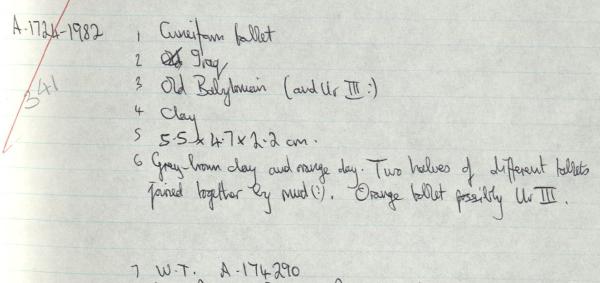 A.1724-1982 1 Cuneiform tablet
341
2 Iraq
3 Old Babylonian (and Ur III?)
4 Clay
5 5.5 x 4.7 x 2.2 cm.
6 Grey-brown clay and orange clay. Two halves of different tablets
joined together by mud(?). Orange tablet possibly Ur III.
7 W.T. A-174290